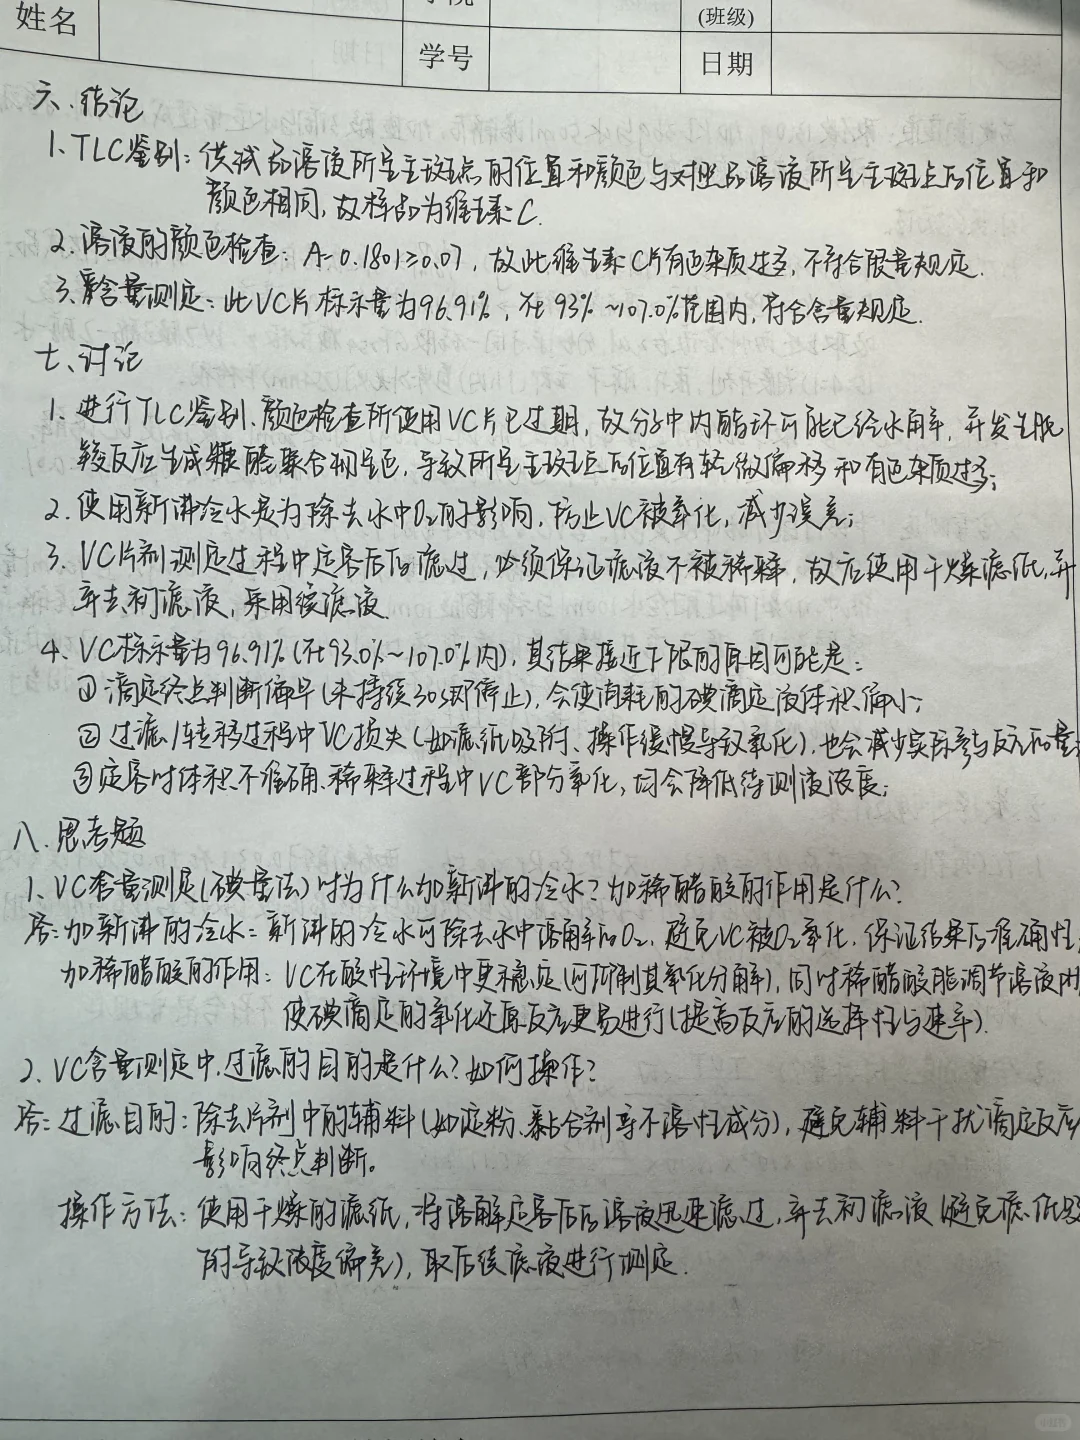 姓名
(班级)
学号
日期
六、结论
1、TLC鉴别：供试品溶液所呈主斑点的位置和颜色与对照品溶液所呈主斑点的位置和
颜色相同，故样品为维生素C.
2、溶液的颜色检查：A=0.1801≥0.07，故此维生素C片有色杂质过多，不符合限量规定.
3、含量测定：此VC片标示量为96.91%，在93%~107.0%范围内，符合含量规定.
七、讨论
1、进行TLC鉴别、颜色检查所使用VC片已过期，故分子中内酯环可能已经水解，并发生脱
羧反应生成糠醛聚合物呈色，导致所呈主斑点的位置有轻微偏移和有色杂质过多；
2、使用新沸冷水是为除去水中O2的影响，防止VC被氧化，减少误差；
3、VC片剂测定过程中定容后的滤过，必须保证滤液不被稀释，故应使用干燥滤纸，并
弃去初滤液，采用续滤液.
4、VC标示量为96.91%(在93.0%~107.0%内)，其结果接近下限的原因可能是：
①滴定终点判断偏早(未持续30s即停止)，会使消耗的碘滴定液体积偏小；
②过滤/转移过程中VC损失(如滤纸吸附、操作缓慢导致氧化)，也会减少实际参与反应的量；
③定容时体积不准确、稀释过程中VC部分氧化，均会降低待测液浓度；
八、思考题
1、VC含量测定(碘量法)时为什么加新沸的冷水？加稀醋酸的作用是什么？
答：加新沸的冷水：新沸的冷水可除去水中溶解的O2，避免VC被O2氧化，保证结果的准确性；
加稀醋酸的作用：VC在酸性环境中更稳定(可抑制其氧化分解)，同时稀醋酸能调节溶液
使碘滴定的氧化还原反应更易进行(提高反应的选择性与速率).
2、VC含量测定中，过滤的目的是什么？如何操作？
答：过滤目的：除去片剂中的辅料(如淀粉、黏合剂等不溶性成分)，避免辅料干扰滴定反应
影响终点判断。
操作方法：使用干燥的滤纸，将溶解定容后的溶液迅速滤过，弃去初滤液(避免滤纸吸
附导致浓度偏差)，取后续滤液进行测定.
小红书